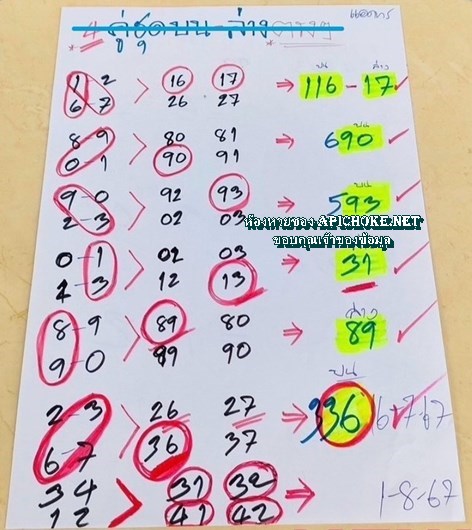 4 คู่ชุดบน-ล่าง
1 - 2 > 16 17 ⇒ บน 116 - ล่าง 17 ✓
6 - 7 26 27
8 - 9 > 80 81 ⇒ บน 690 ✓
0 - 1 90 91
9 - 0 > 92 93 ⇒ บน 593 ✓
2 - 3 02 03
ห้องหวยของ APICHOKE.NET
ขอบคุณเจ้าของข้อมูล
0 - 1 > 02 03 ⇒ 31 ✓
2 - 3 12 13
8 - 9 > 89 80 ⇒ ล่าง 89 ✓
9 - 0 99 90
2 - 3 > 26 27 ⇒ บน 336 16-7-67
6 - 7 36 37
3 4 > 31 32 ⇒ 1-8-67
1 2 41 42